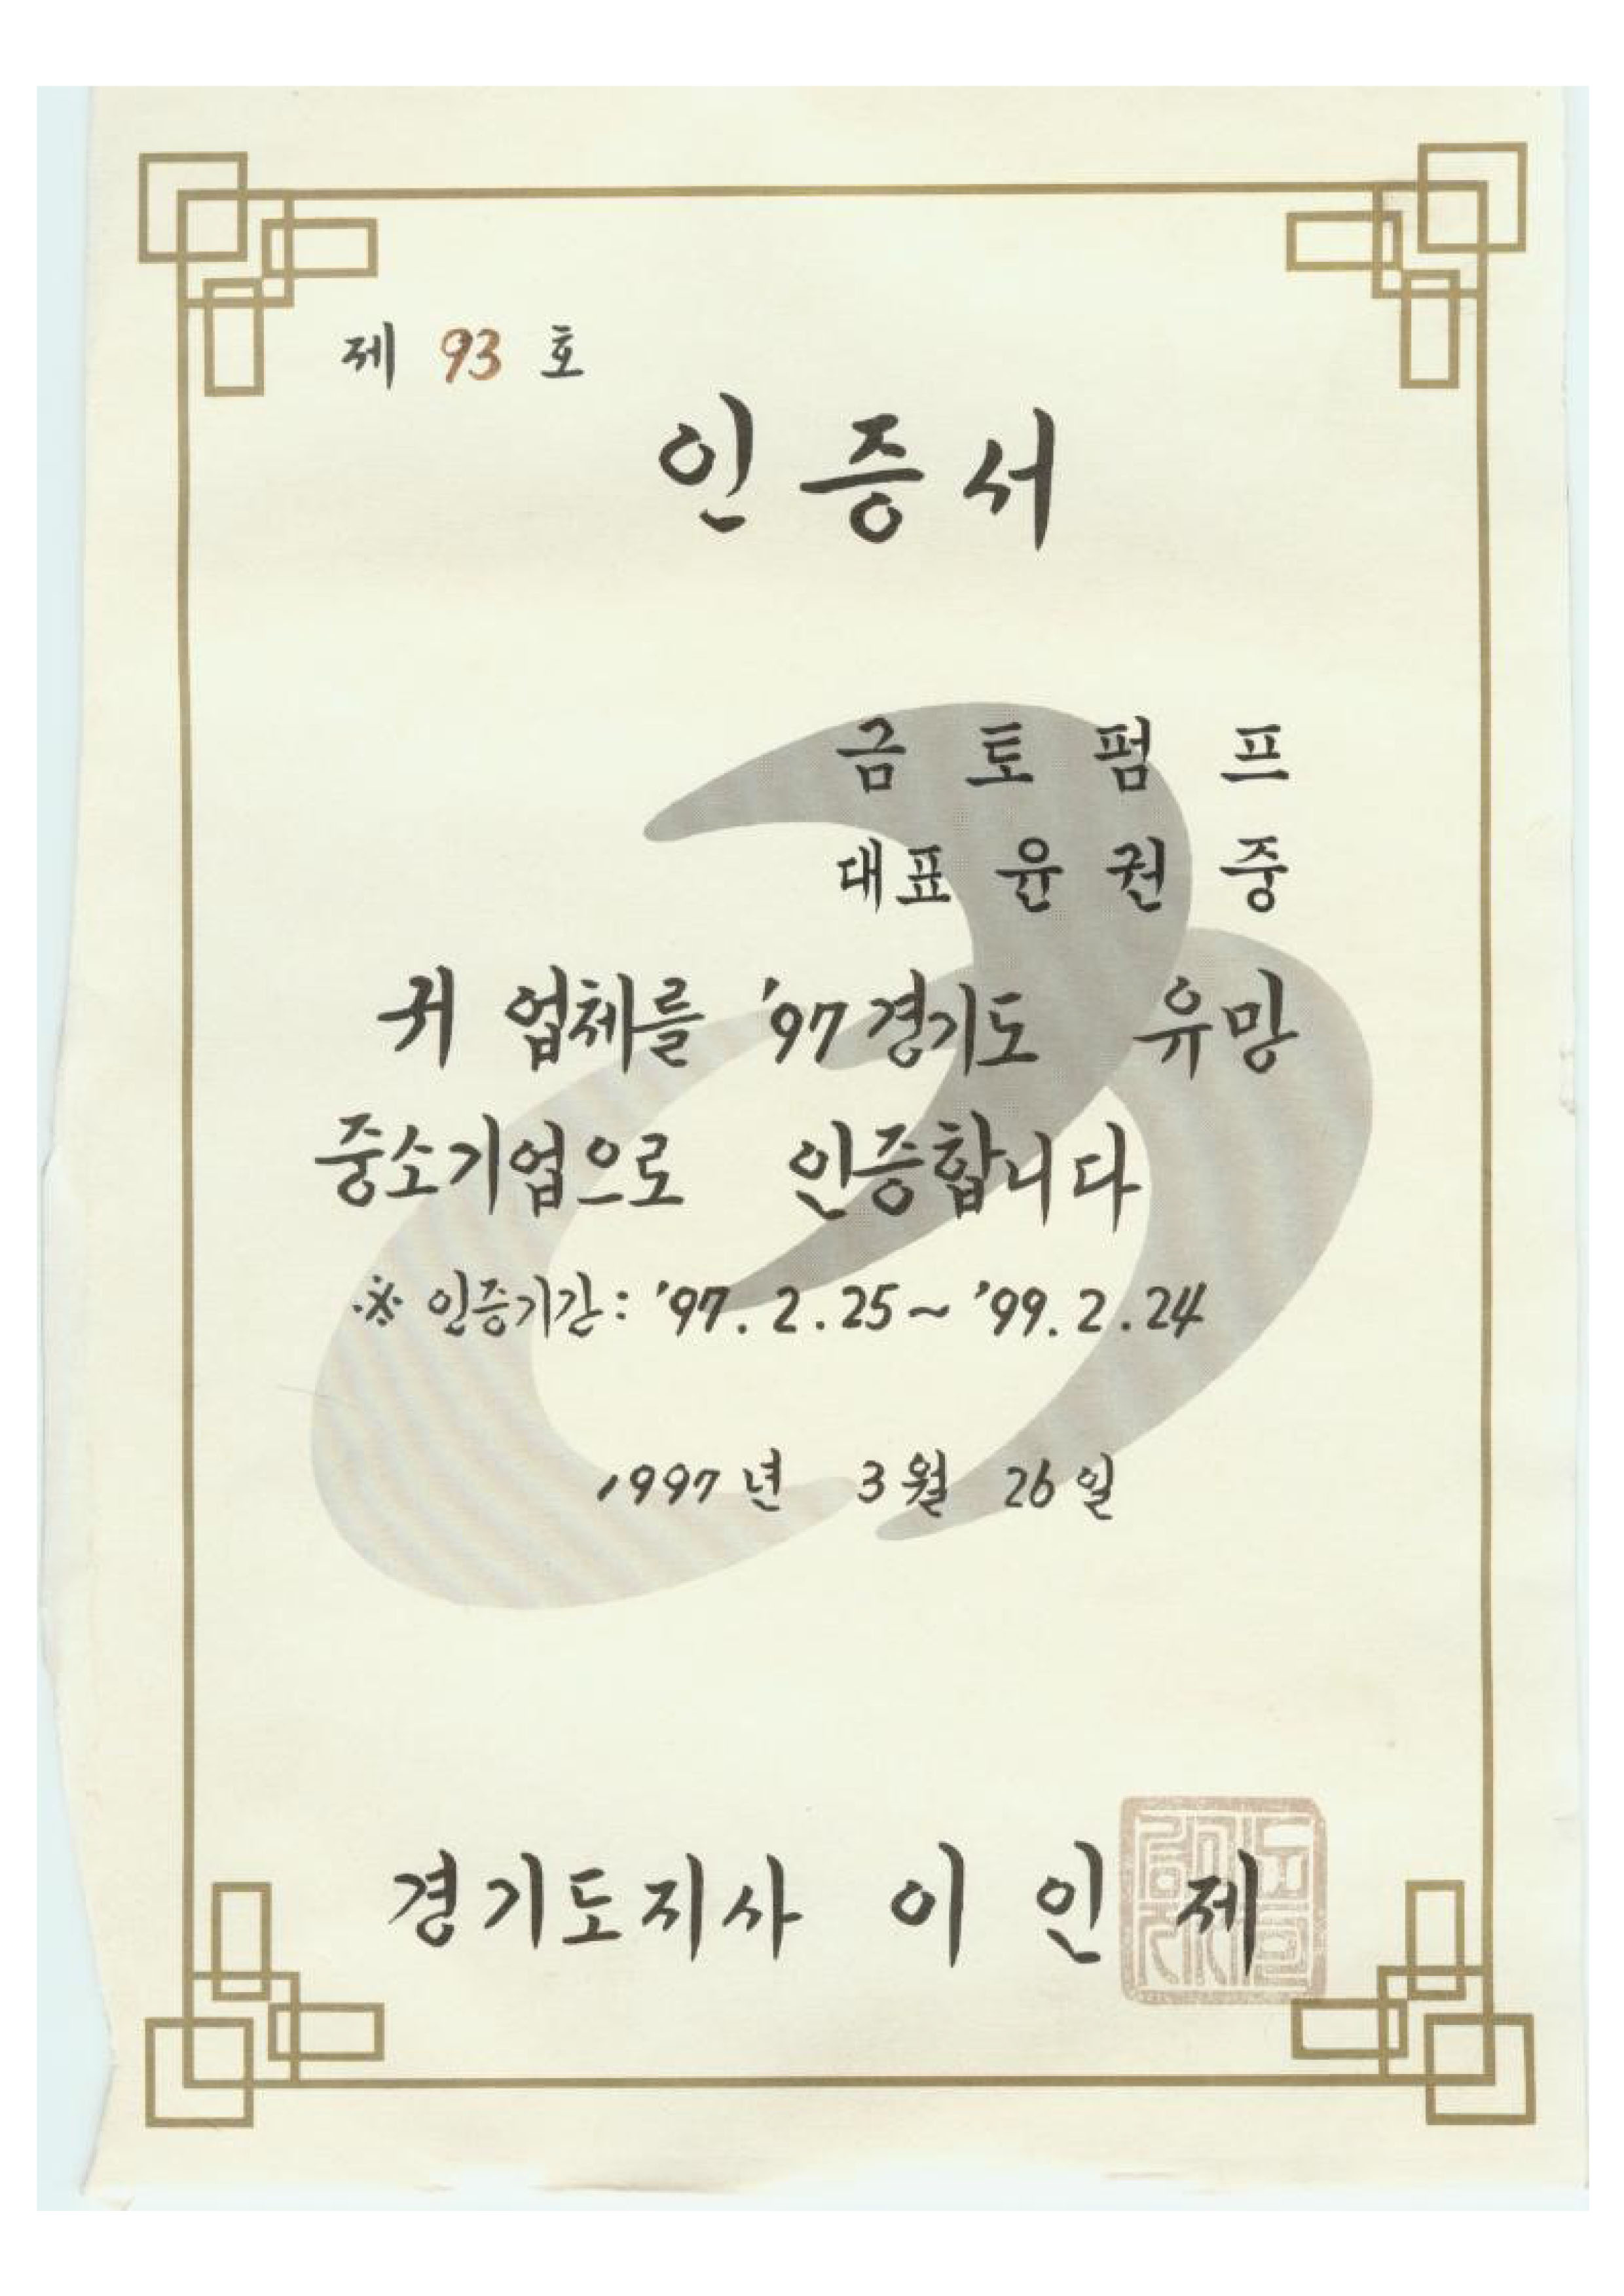 제 93 호
인증서
금 토 펌 프
대표 윤 권 중
귀 업체를 '97 경기도 유망
중소기업으로 인증합니다
※ 인증기간: '97. 2. 25 ~ '99. 2. 24
1997년 3월 26일
경기도지사 이 인 제